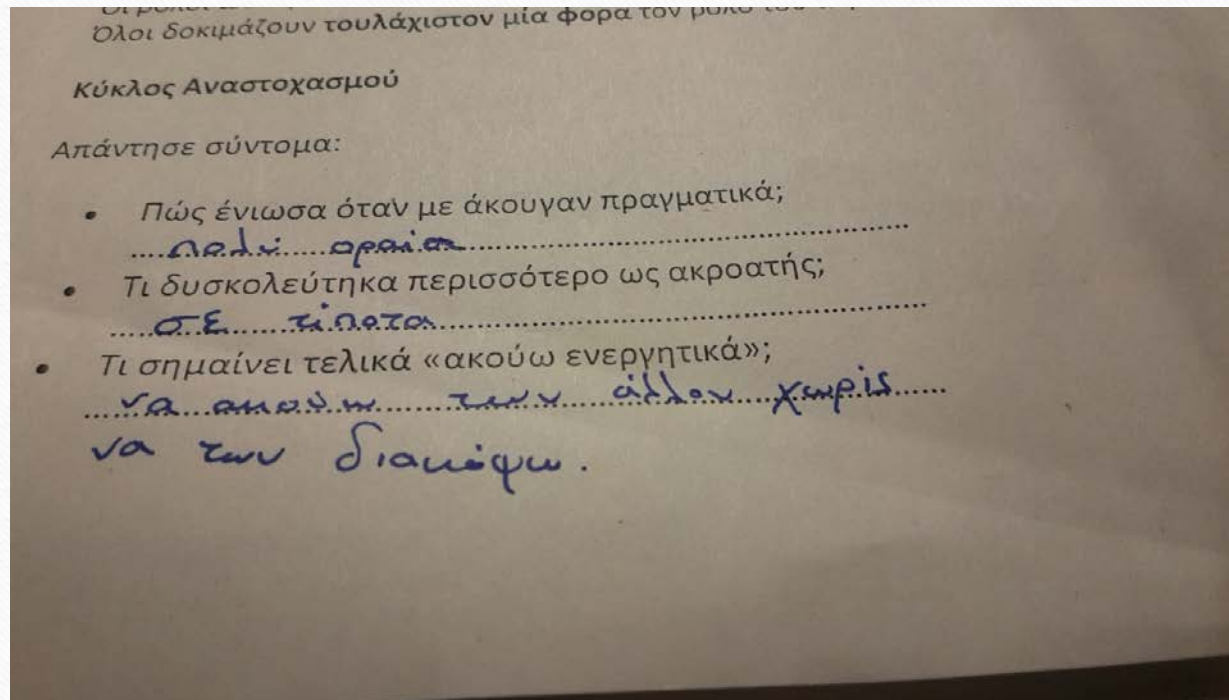 Όλοι δοκιμάζουν τουλάχιστον μία φορα τον ρόλο του
Κύκλος Αναστοχασμού
Απάντησε σύντομα:
• Πώς ένιωσα όταν με άκουγαν πραγματικά;
πολύ οραία
• Τι δυσκολεύτηκα περισσότερο ως ακροατής;
σε τίποτα
• Τι σημαίνει τελικά «ακούω ενεργητικά»;
να ακούω των άλλον χωρίς
να των διακόψω.